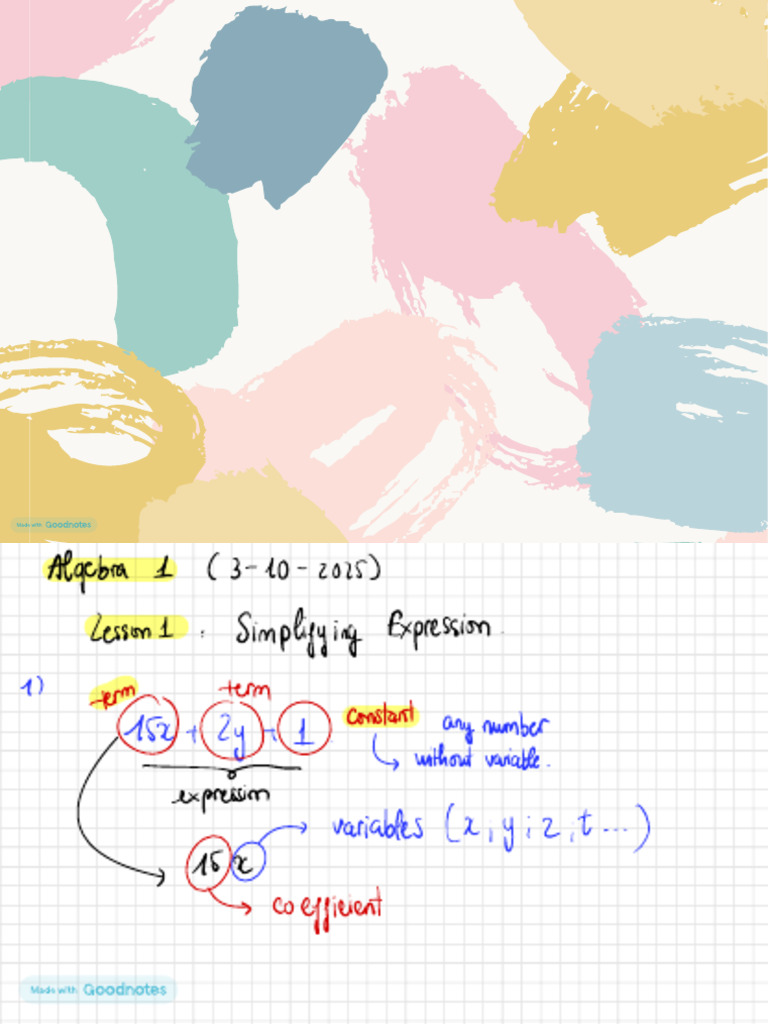 Made with Goodnotes
Algebra 1 (3-10-2025)
Lesson 1 : Simplifying Expression.
1)
term term
15x + 2y + 1 constant any number
without variable.
expression
variables (x ; y ; z ; t ...)
15 x
coefficient
Made with Goodnotes